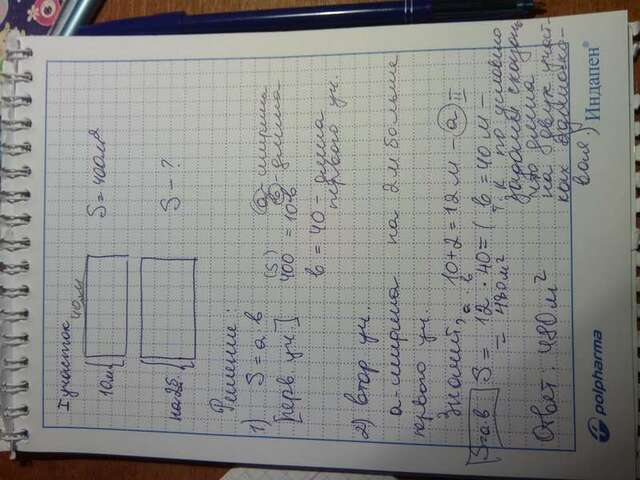 I участок
40м
10м
S = 400м2
на 2б
S - ?
Решение:
1) S = a · b
[перв. уч.]
(S)
400 = 10 · b
a - ширина
b - длина
b = 40 - длина
первого уч.
2) втор уч.
a - ширина на 2м больше
первого уч.
Значит, 10 + 2 = 12 м - a II
S = a · b
a b
S = 12 · 40 = ( b = 40 м -
= 480 м²
т. к по условию
задания сказано
что длина
на двух участ-
ках одинако-
вая)
Ответ: 480 м²
polpharma
Индапен®